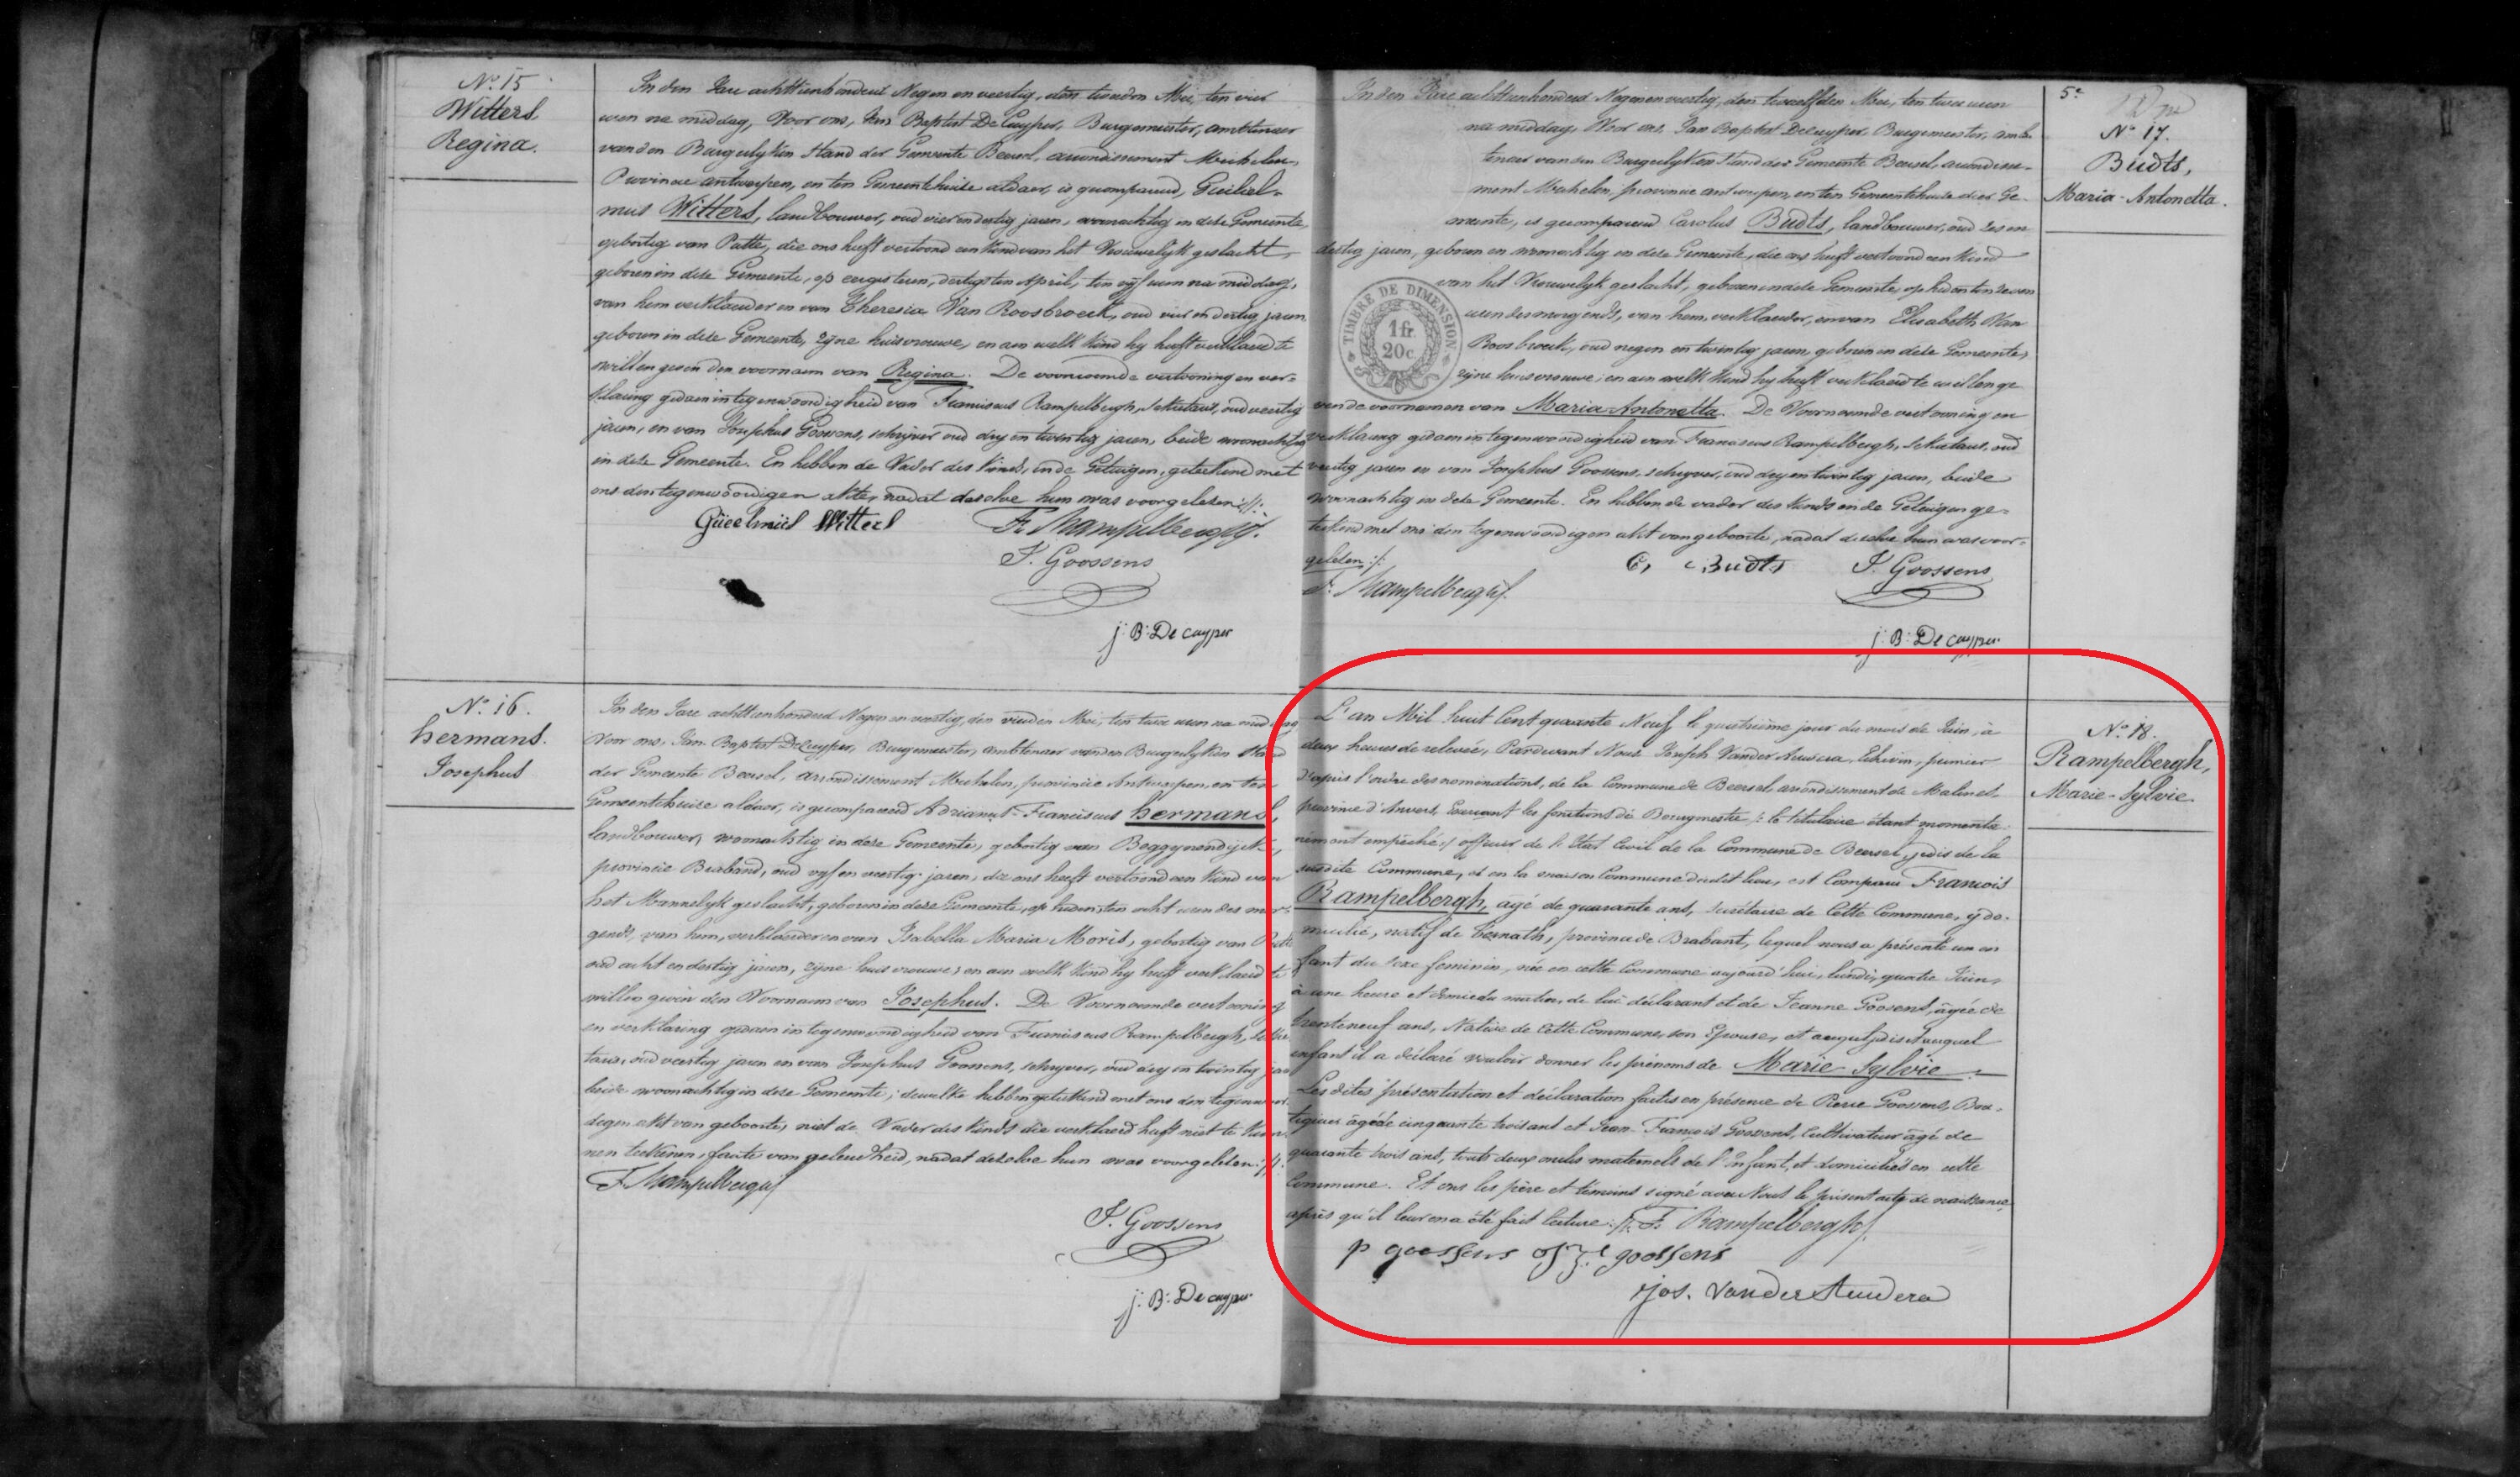 N° 15
Witters
Regina.
In den Jare achttienhonderd Negen en veertig, den tweeden Mei, ten vier
uren na middag, Voor ons, Jan Baptist De Cuyper, Burgemeester, ambtenaer
van den Burgerlyken Stand der Gemeente Beersel, arrondissement Mechelen,
Provincie antwerpen, en ten Gemeentehuise aldaer, is gecompareerd, Guiliel=
mus Witters, landbouwer, oud vier en dertig jaren, woonachtig in dese Gemeente,
geboortig van Putte, die ons heeft vertoond een kind van het Vrouwelyk geslacht,
geboren in dese Gemeente, op eergisteren, dertigsten April, ten vyf uren na middag,
van hem verklaerder en van Theresia Van Roosbroeck, oud vier en dertig jaren
geboren in dese Gemeente, zyne huisvrouwe, en aen welk kind hy heeft verklaerd te
willen geven den voornaem van Regina. De voornoemde vertooning en ver=
klaring gedaen in tegenwoordigheid van Franciscus Rampelbergh, sekretaris, oud veertig
jaren, en van Josephus Goossens, schryver oud dry en twintig jaren, beide woonachtig
in dese Gemeente. En hebben de Vader des kinds, en de Getuigen, geteekend met
ons den tegenwoordigen akte, nadat deselve hun was voorgelesen ://:
Guielmus Witters F. Rampelbergh.
J. Goossens
j: B: De cuyper
N° 16.
hermans.
Josephus
In den Jare achttienhonderd Negen en veertig, den vierden Mei, ten twee uren na middag
Voor ons, Jan Baptist De Cuyper, Burgemeester, ambtenaer van den Burgerlyken Stand
der Gemeente Beersel, arrondissement Mechelen, provincie Antwerpen, en ten
Gemeentehuise aldaer, is gecompareerd Adrianus-Franciscus hermans,
landbouwer, woonachtig in dese Gemeente, geboortig van Beggynendyck,
provincie Braband, oud vyf en veertig jaren, die ons heeft vertoond een kind van
het Mannelyk geslacht, geboren in dese Gemeente, op heden, ten acht uren des mor=
gends, van hem, verklaerder en van Isabella Maria Moris, geboortig van Putte
oud acht en dertig jaren, zyne huisvrouwe; en aen welk kind hy heeft verklaerd te
willen geven den Voornaem van Josephus. De Voornoemde vertooning
en verklaring gedaen in tegenwoordigheid van Franciscus Rampelbergh, sekre
taris, oud veertig jaren en van Josephus Goossens, schryver, oud dry en twintig jaren
beide woonachtig in dese Gemeente; dewelke hebben geteekend met ons den tegenwoor
digen akt van geboorte, niet de Vader des kinds die verklaerd heeft niet te kun
nen teekenen, faute van geleerdheid, nadat deselve hun was voorgelesen ://:
F. Rampelbergh
J. Goossens
j: B: De cuyper
In den Jare achttienhonderd Negen en veertig, den twaelfden Mei, ten twee uren
na middag, Voor ons, Jan Baptist Decuyper, Burgemeester, amb=
tenaer van den Burgerlyken Stand der Gemeente Beersel, arrondisse=
ment Mechelen, provincie antwerpen, en ten Gemeentehuise dier Ge=
meente, is gecompareerd Carolus Budts, landbouwer, oud zes en
dertig jaren, geboren en woonachtig in dese Gemeente, die ons heeft vertoond een kind
van het Vrouwelyk geslacht, geboren in dese Gemeente, op heden ten zeven
uren des morgends, van hem, verklaerder, en van Elisabeth Van
Roosbroeck, oud negen en twintig jaren, geboren in dese Gemeente,
zyne huisvrouwe; en aen welk kind hy heeft verklaerd te willen ge
ven de voornamen van Maria Antonetta. De Voornoemde vertooning en
verklaring gedaen in tegenwoordigheid van Franciscus Rampelbergh, sekretaris, oud
veertig jaren en van Josephus Goossens, schryver, oud dry en twintig jaren, beide
woonachtig in dese Gemeente. En hebben de vader des kinds en de Getuigen ge=
teekend met ons den tegenwoordigen akt van geboorte, nadat deselve hun was voor=
gelesen :/:
C, Budts J. Goossens
F. Rampelbergh.
j: B: De cuyper
TIMBRE DE DIMENSION
1 fr.
20 c.
5e
N° 17.
Budts,
Maria-Antonetta.
L'an Mil huit Cent quarante Neuf, le quatrième jour du mois de Juin, à
deux heures de relevée, Pardevant Nous Joseph Vander Auwera, Echevin, premier
d'après l'ordre des nominations, de la Commune de Beersel, arrondissement de Malines,
province d'Anvers, Exerçant les fonctions de Bourgmestre /: le titulaire étant momenta=
nément empêché :/ officier de l'Etat Civil de la Commune de Beersel, jadis de la
susdite Commune, et en la maison Commune dudit lieu, est Comparu François
Rampelbergh, agé de quarante ans, secrétaire de Cette Commune, y do=
micilié, natif de Ternath, province de Brabant, lequel nous a présenté un en
fant du sexe feminin, née en cette Commune aujourd'hui, lundi, quatre Juin,
à une heure et demie du matin, de lui déclarant et de Jeanne Goossens, agée de
trente neuf ans, Native de Cette Commune, son Epouse, et auquel
enfant il a déclaré vouloir donner les prénoms de Marie Sylvie.
Les dites présentation et déclaration faites en présence de Pierre Goossens, Bou=
tiquier âgé de cinquante trois ans et Jean-François Goossens, Cultivateur agé de
quarante trois ans, touts deux oncles maternels de l'Enfant, et domiciliés en cette
Commune. Et ons les père et témoins signé avec Nous le présent acte de naissance,
après qu'il leur en a été fait lecture ://: F. Rampelbergh.
p goossens J. f. goossens
jos. Vander Auwera
N° 18.
Rampelbergh,
Marie-Sylvie